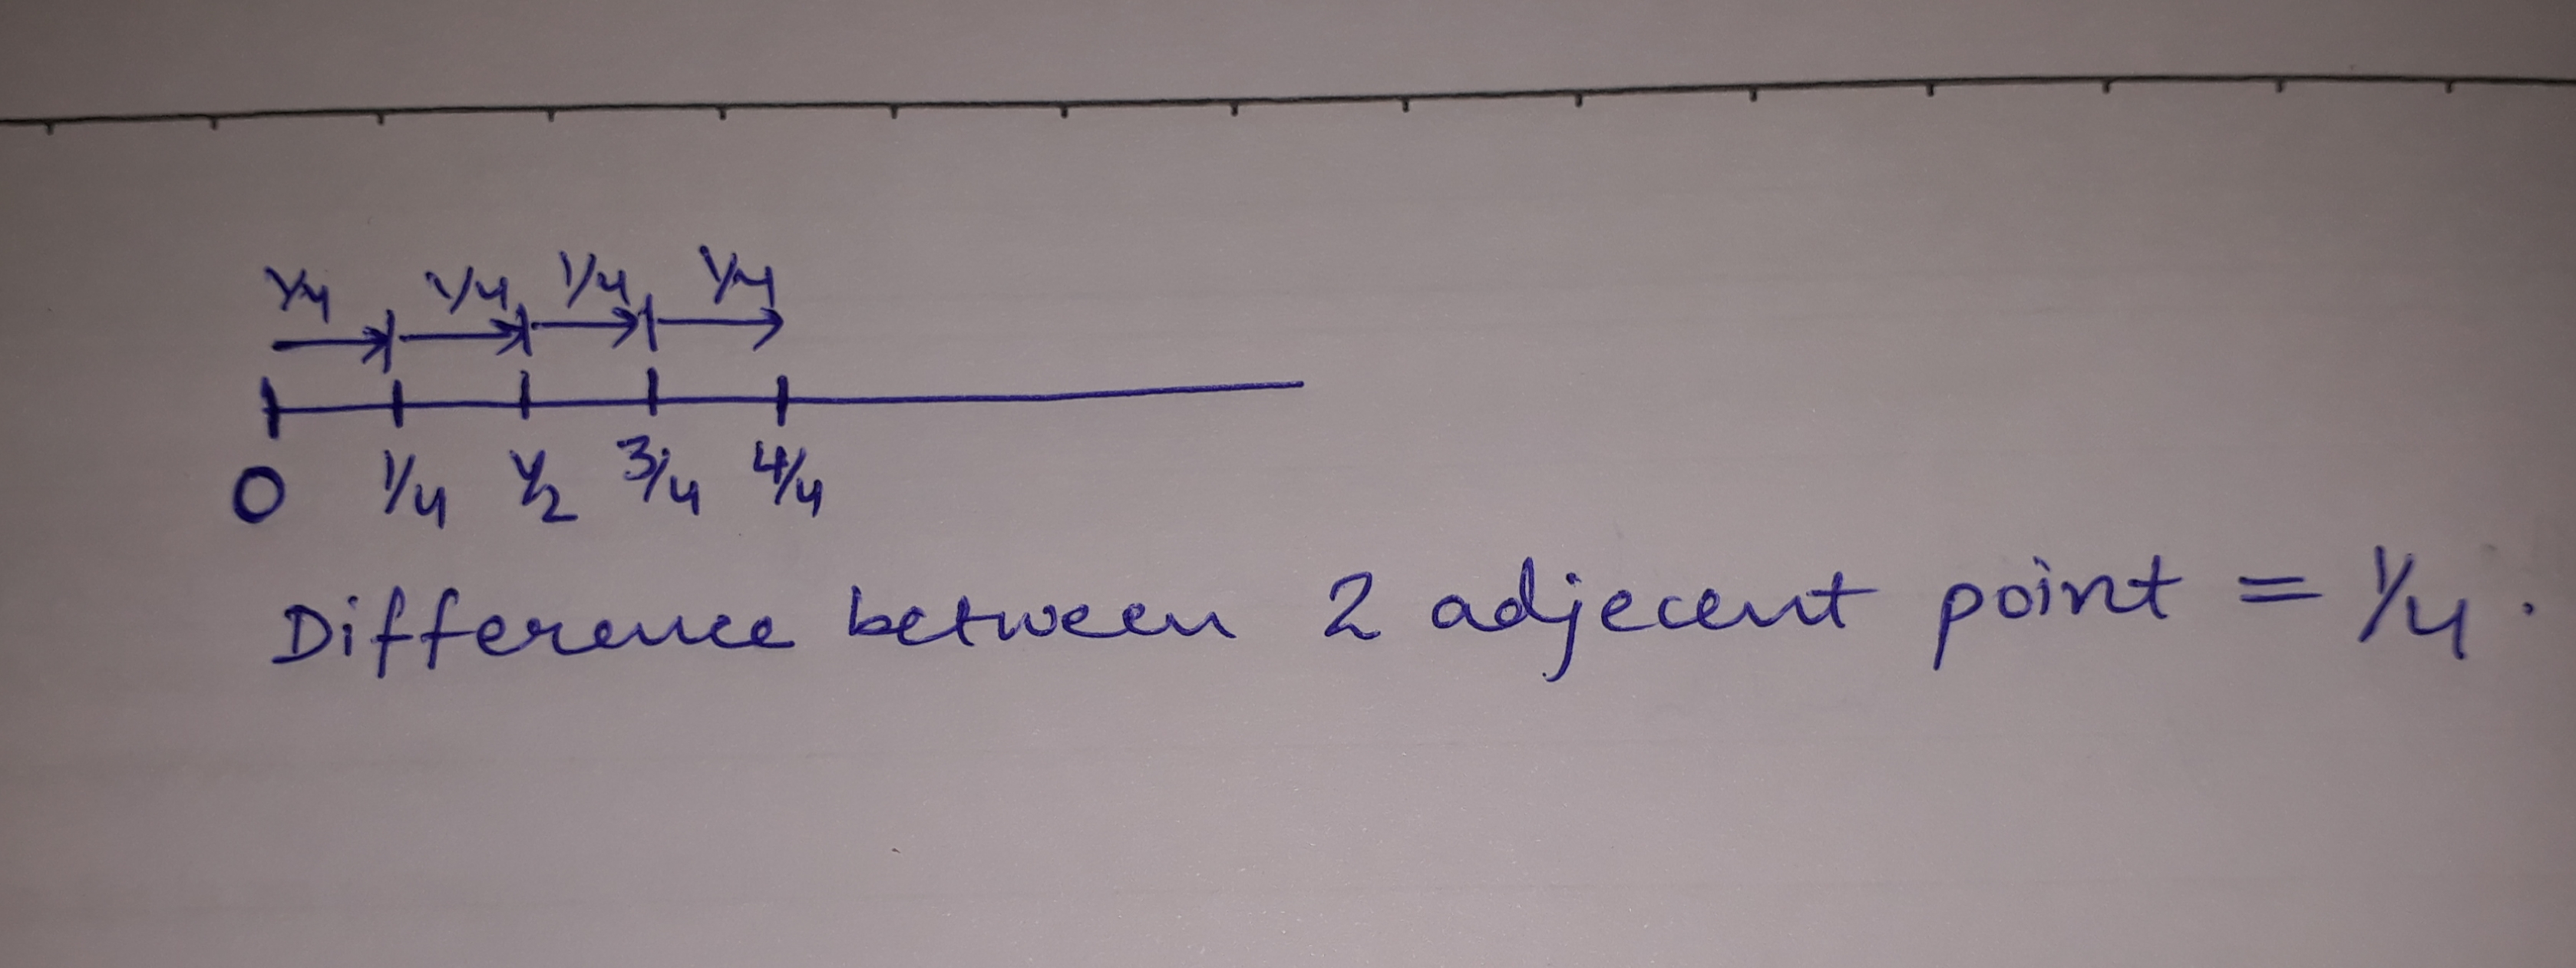 1/4 1/4 1/4 1/4
0 1/4 1/2 3/4 4/4
Difference between 2 adjecent point = 1/4.